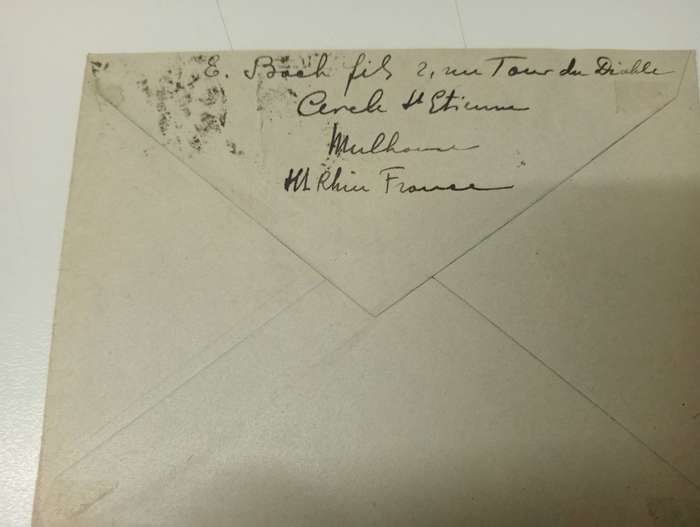 E. Bach fils 2, rue Tour du Diable
Cercle St Etienne
Mulhouse
Ht Rhin France